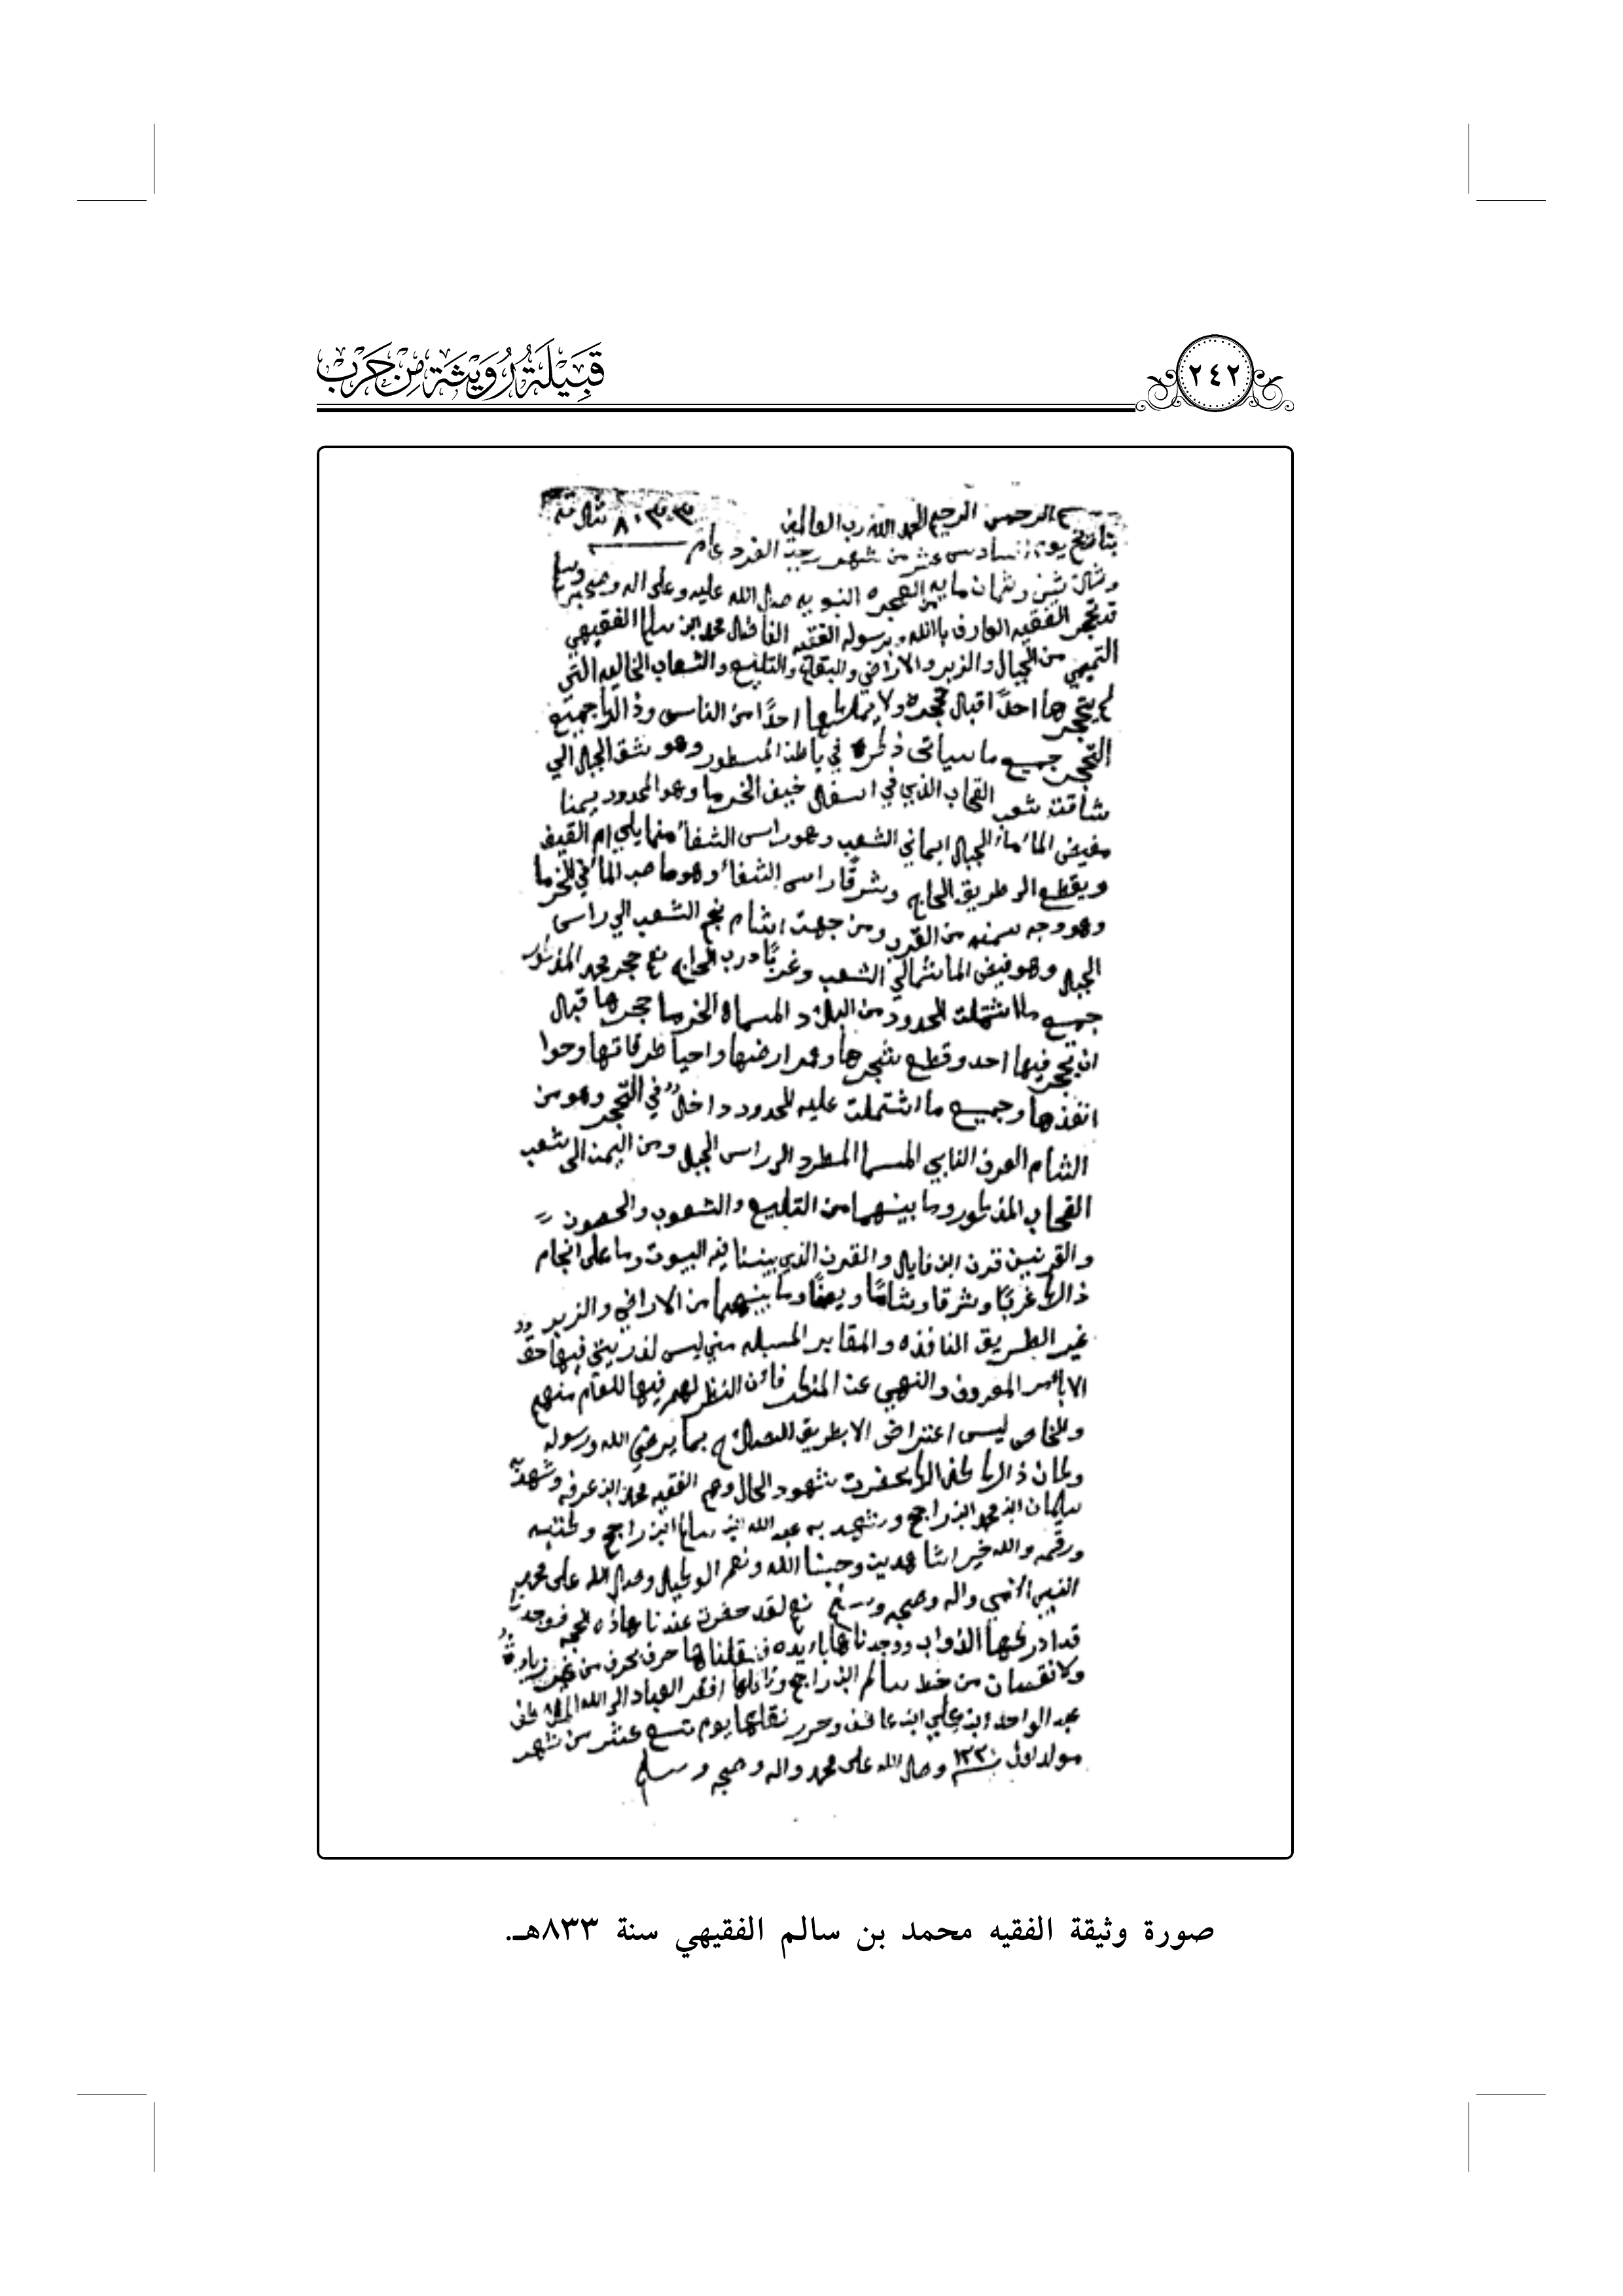 قَبِيلَة رُوَيْثَة مِنْ حَرْب
٢٤٢
الرحمن الرحيم الحمد الله رب العالمين
بتاريخ يوم السادس عشر من شهر رجب الفرد عام
وثمان مايه من الهجره النبويه صلى الله عليه وعلى اله وصحبه وسلم
قد تحجر الفقيه العارف باالله وبرسوله الفقيه الفاضل محمد ابن سالم الفقيهي
التميمي من الجبال والزبر والاراضي والبقاع والتليع والشعاب الخاليه التي
لم يتحجرها احدًا اقبال حجره ولا يملكها احدًا من الناس وذالك جميع
التحجر جميع ما سياتى ذكره في باطن المسطور وهو شق الجبال الي
شاقت شعب القحاب الذي في اسفل خيف الخرما وهو المحدود يمنا
مفيض الماء من الجبال ايماني الشعب وهو راس الشفاء منما يلي ام القيف
ويقطع الى طريق الحاج وشرقًا راس الشفاء وهو ما صب الماء في الخرما
وهو وجه سمنه من القرن ومن جهت اشام نجم الشعب الي راس
الجبل وهو فيض الما شمالي الشعب وغربًا درب الحاج نعم حجر محمد المذكور
جميع ما اشتملت الحدود من البلاد المسماه الخرما حجرها قبال
ان يتحجر فيها احد وقطع شجرها وعمر ارضها واحيا طرقاتها وحوا
انفذها وجميع ما اشتملت عليه الحدود داخل في التحجر وهو من
الشام العرف النابي المسما المطرد الى راس الجبل ومن اليمن الى شعب
القحاب المذكور وما بينهما من التليع والشعوب والحصون
والقرنين قرن ابن فايل والقرن الذي بيننا فيه البيوت وما على انجام
ذالك غربًا وشرقا وشامًا ويمنًا وما بينهما من الاراضي والزبر
غير الطريق النافذه والمقابر المسبله مني ليس لذريتي فيها حق
الا بالامر المعروف والنهي عن المنكر فائن النظر لهم فيها للعام منهم
وللخاص ليس اعتراض الا بطريق الصالح بما يرضي الله ورسوله
وكان ذالك كذالك بحضرت شهود الحال وهم الفقيه محمد ابن عرفه وشهد به
سلمان ابن محمد ابن راجح وشهد به عبد الله ابن سالم ابن راجح وكتبه
ورقمه والله خير الشاهدين وحسبنا الله ونعم الوكيل وصلى الله على محمد
النبي الامي واله وصحبه وسلم نعم لقد حضرت عندنا هاذه الحجه فوجدنا
قد ادركها الذواب ووجدناها باديده فنقلناها حرف بحرف من غير زيادة
ولا نقصان من خط سالم ابن راجح وناقلها افقر العباد الى الله
عبد الواحد ابن علي ابن عاتق وحرر نقلها يوم تسع عشر من شهر
مولد اول سنة ١٣٣٠ وصلى الله على محمد واله وصحبه وسلم
صورة وثيقة الفقيه محمد بن سالم الفقيهي سنة ٨٣٣هـ.